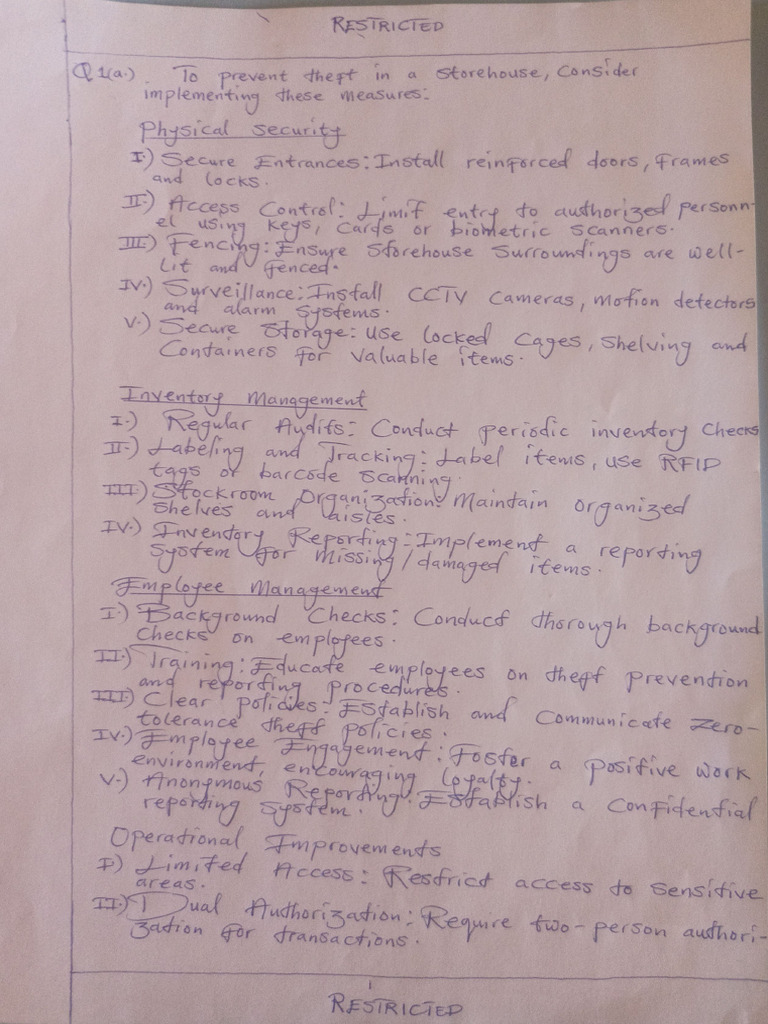 RESTRICTED
Q1(a.). To prevent theft in a storehouse, consider
implementing these measures:
Physical security
I.) Secure Entrances: Install reinforced doors, frames
and locks.
II.) Access Control: Limit entry to authorized personn-
el using keys, cards or biometric scanners.
III.) Fencing: Ensure storehouse surroundings are well-
lit and fenced.
IV.) Surveillance: Install CCTV cameras, motion detectors
and alarm systems.
V.) Secure Storage: use locked cages, shelving and
Containers for valuable items.
Inventory Management
I.) Regular Audits: Conduct periodic inventory checks
II.) Labeling and Tracking: Label items, use RFID
tags or barcode scanning.
III.) Stockroom Organization: Maintain organized
shelves and aisles.
IV.) Inventory Reporting: Implement a reporting
system for missing/damaged items.
Employee Management
I.) Background Checks: Conduct thorough background
checks on employees.
II.) Training: Educate employees on theft prevention
and reporting procedures.
III) Clear policies: Establish and communicate zero-
tolerance theft policies.
IV.) Employee Engagement: Foster a positive work
environment, encouraging loyalty.
V.) Anonymous Reporting: Establish a confidential
reporting system.
Operational Improvements
I) Limited Access: Restrict access to sensitive
areas.
II.) Dual Authorization: Require two-person authori-
zation for transactions.
RESTRICTED